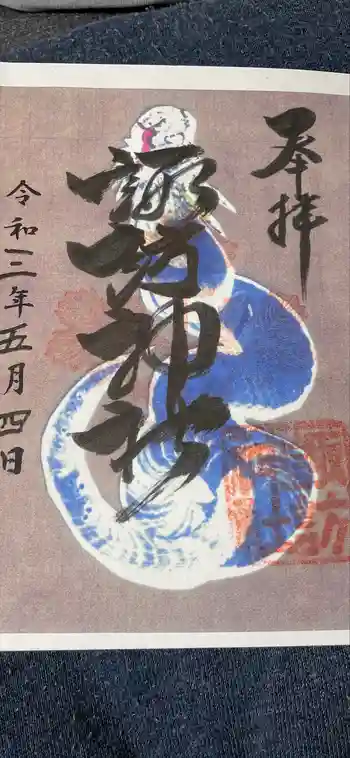 奉拝
諏訪神社
令和三年五月四日